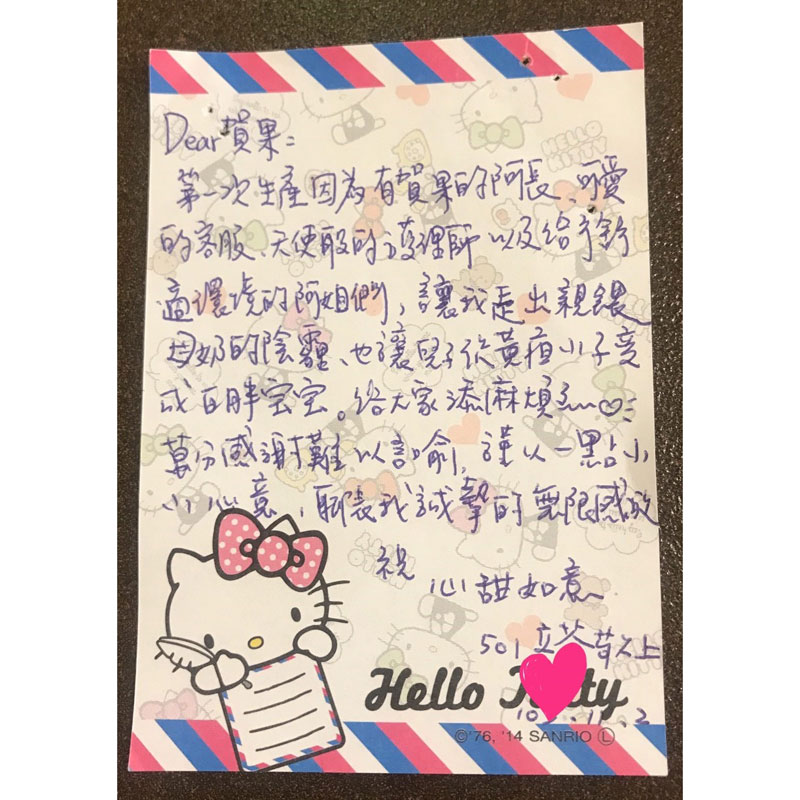 Dear 蘋果：
第一次生產因為有蘋果的阿長、可愛
的客服、天使般的護理師以及給予舒
適環境的阿姐們，讓我走出親餵
母奶的陰霾、也讓兒子從黃疸小子變
成白胖宝宝。給大家添麻煩了~♡
萬分感謝難以言喻，謹以一點小
小心意，聊表我誠摯的無限感激
祝
心甜如意
501 上
10 .11.2
Hello Kitty
©'76, '14 SANRIO Ⓛ